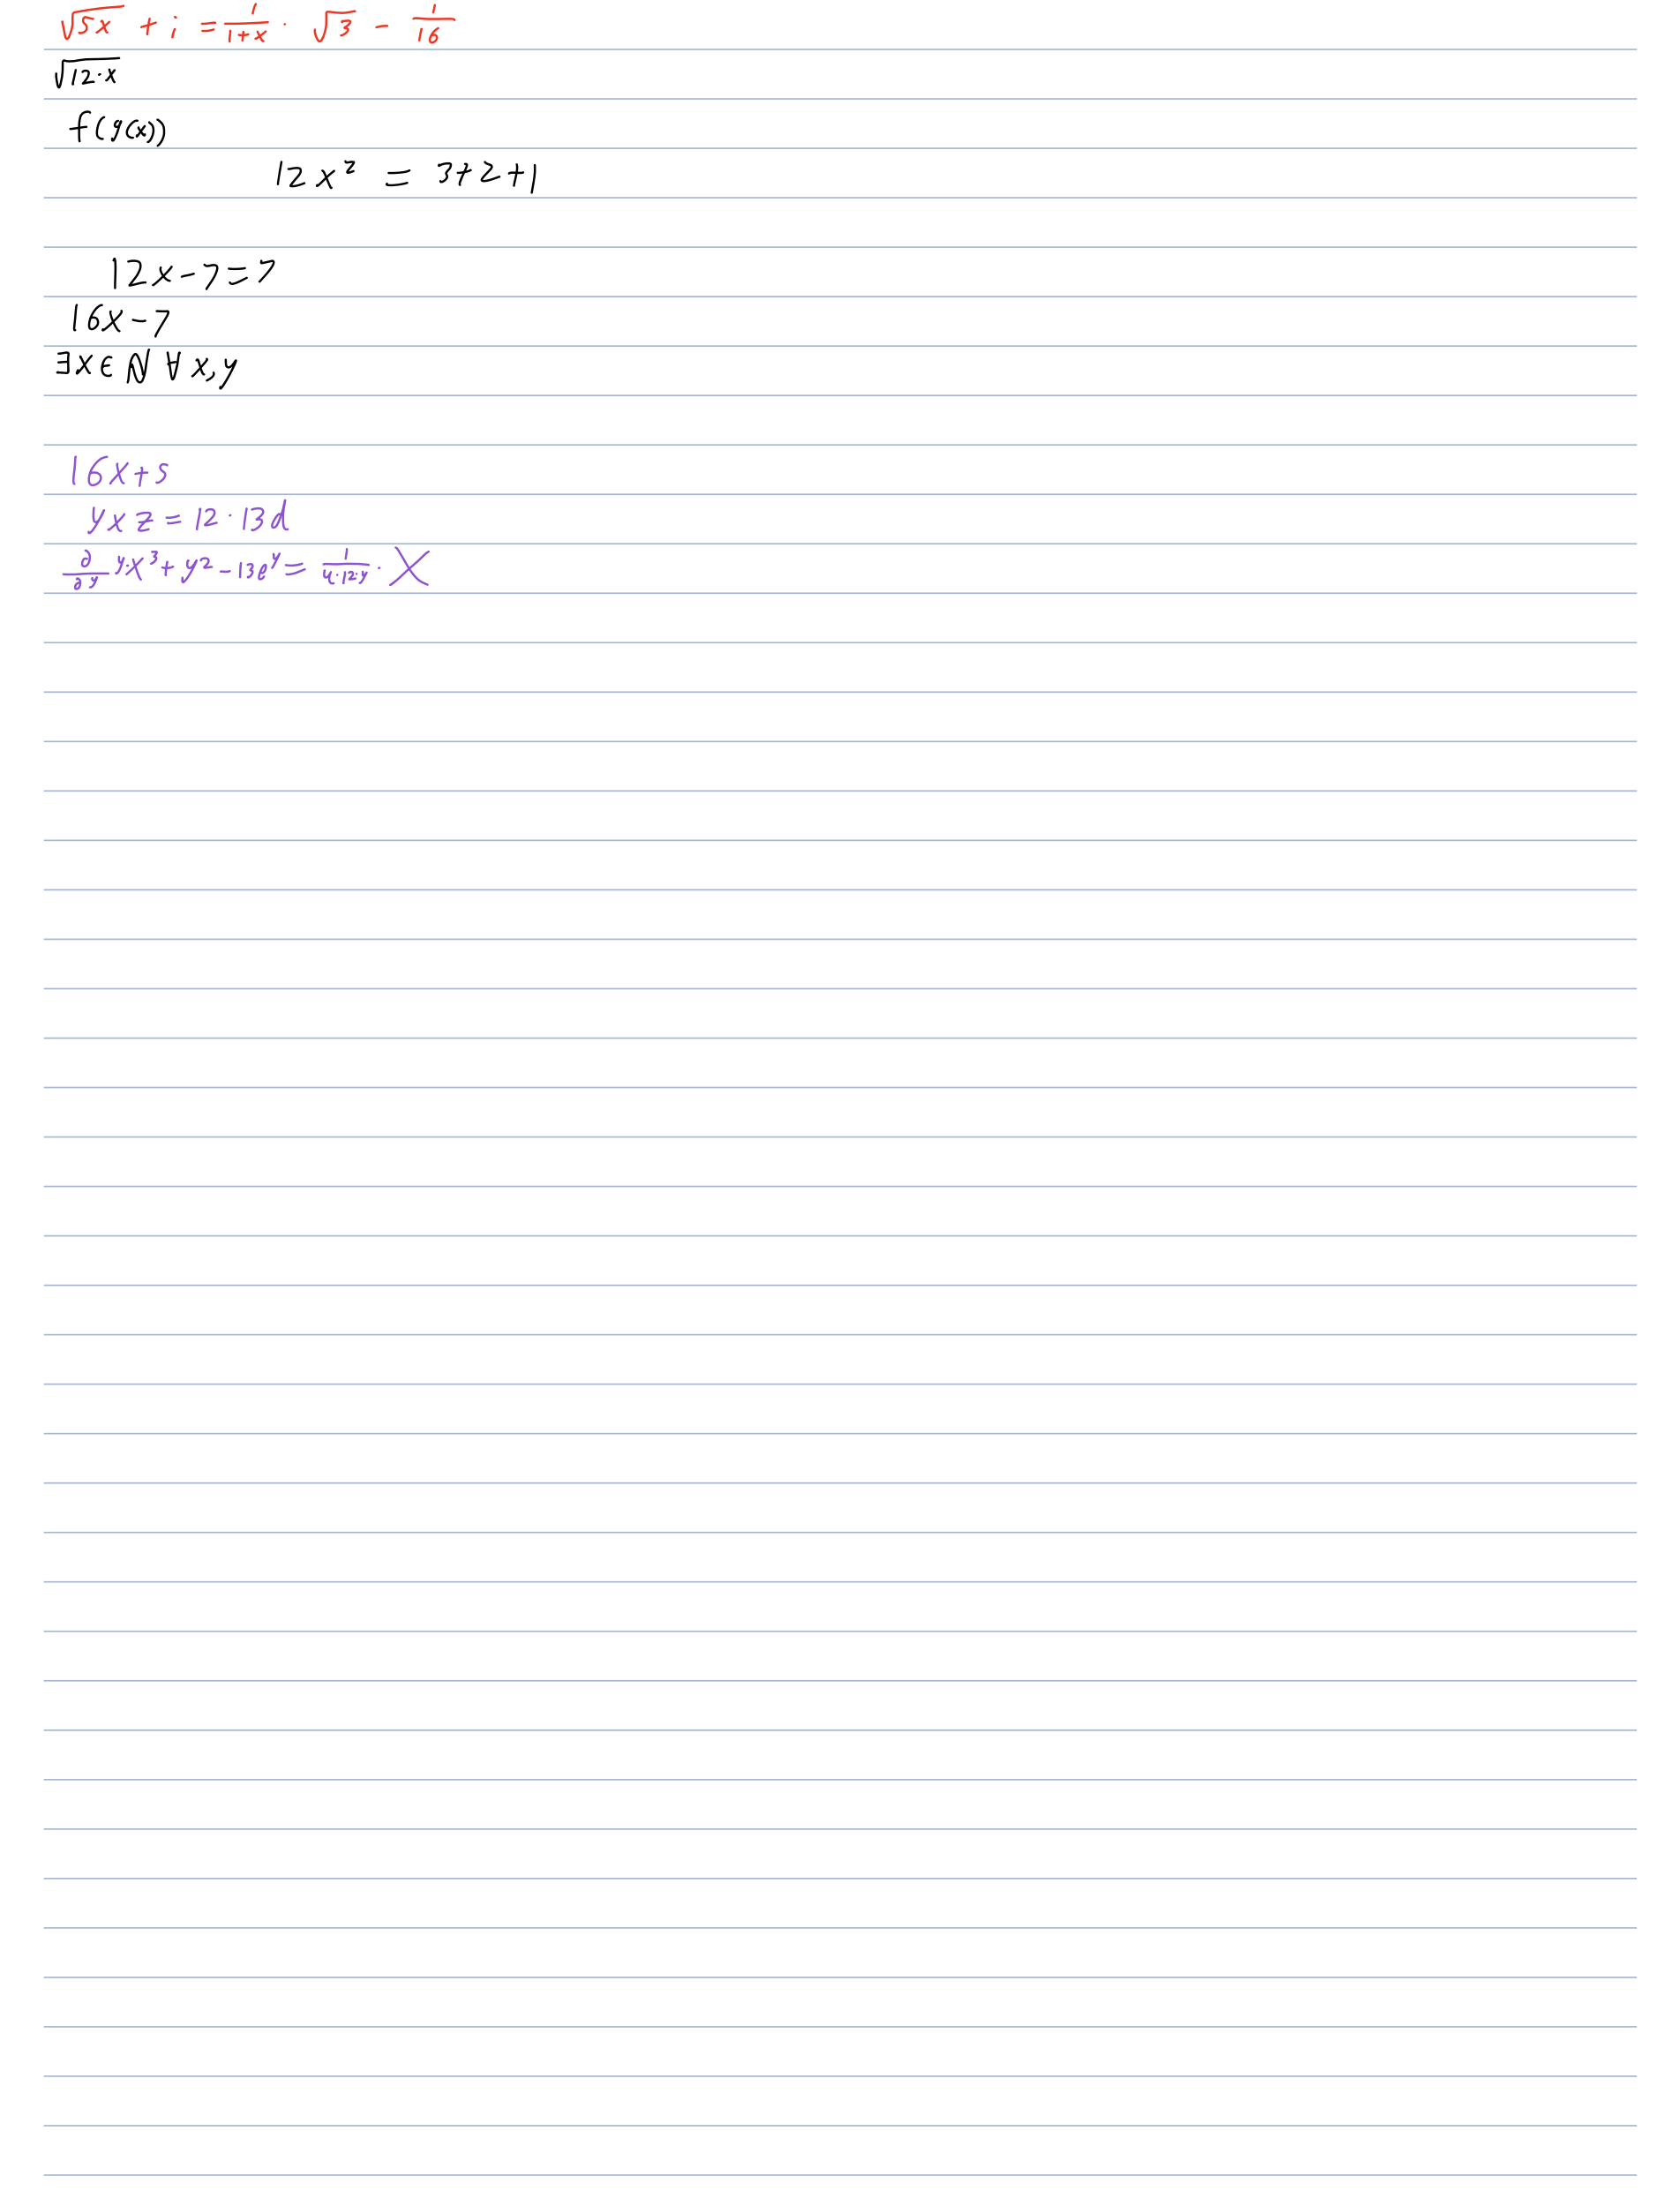 √(5x) + i = 1/(1+x) · √3 - 1/16
√(12·x)
f(g(x))
12x² = 3+2+1
12x-7=7
16x-7
∃x∈ℕ ∀x,y
16x+5
y×z=12·13d
∂/∂y y·x³+y²-13e^y = 1/(4·12·y) · X